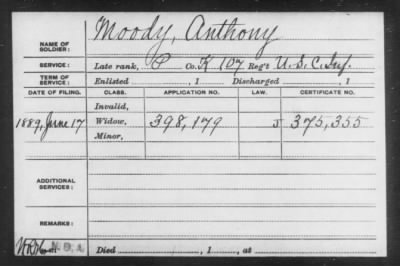 NAME OF SOLDIER: Moody, Anthony
SERVICE: Late rank, P Co. K 107 Reg't U.S.C. Inf.
TERM OF SERVICE: Enlisted , 1 Discharged , 1
DATE OF FILING. CLASS. APPLICATION NO. LAW. CERTIFICATE NO.
Invalid,
1889, June 17 Widow, 398,179 J 375,355
Minor,
ADDITIONAL SERVICES:
REMARKS:
Died , 1 , at